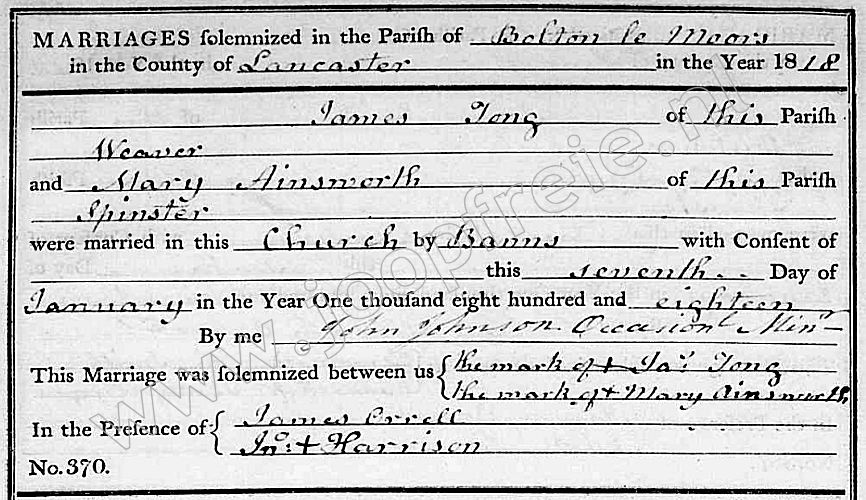 MARRIAGES ſolemnized in the Pariſh of Bolton le Moors
in the County of Lancaster in the Year 1818
James Tong of this Pariſh
Weaver
and Mary Ainsworth of this Pariſh
Spinster
were married in this Church by Banns with Conſent of
this seventh Day of
January in the Year One thouſand eight hundred and eighteen
By me John Johnson Occasionl Minr
This Marriage was ſolemnized between us { the mark of + Jas Tong
the mark of + Mary Ainsworth
In the Preſence of { James Orrell
Jno. + Harrison
No. 370.
www.joopfreie.nl